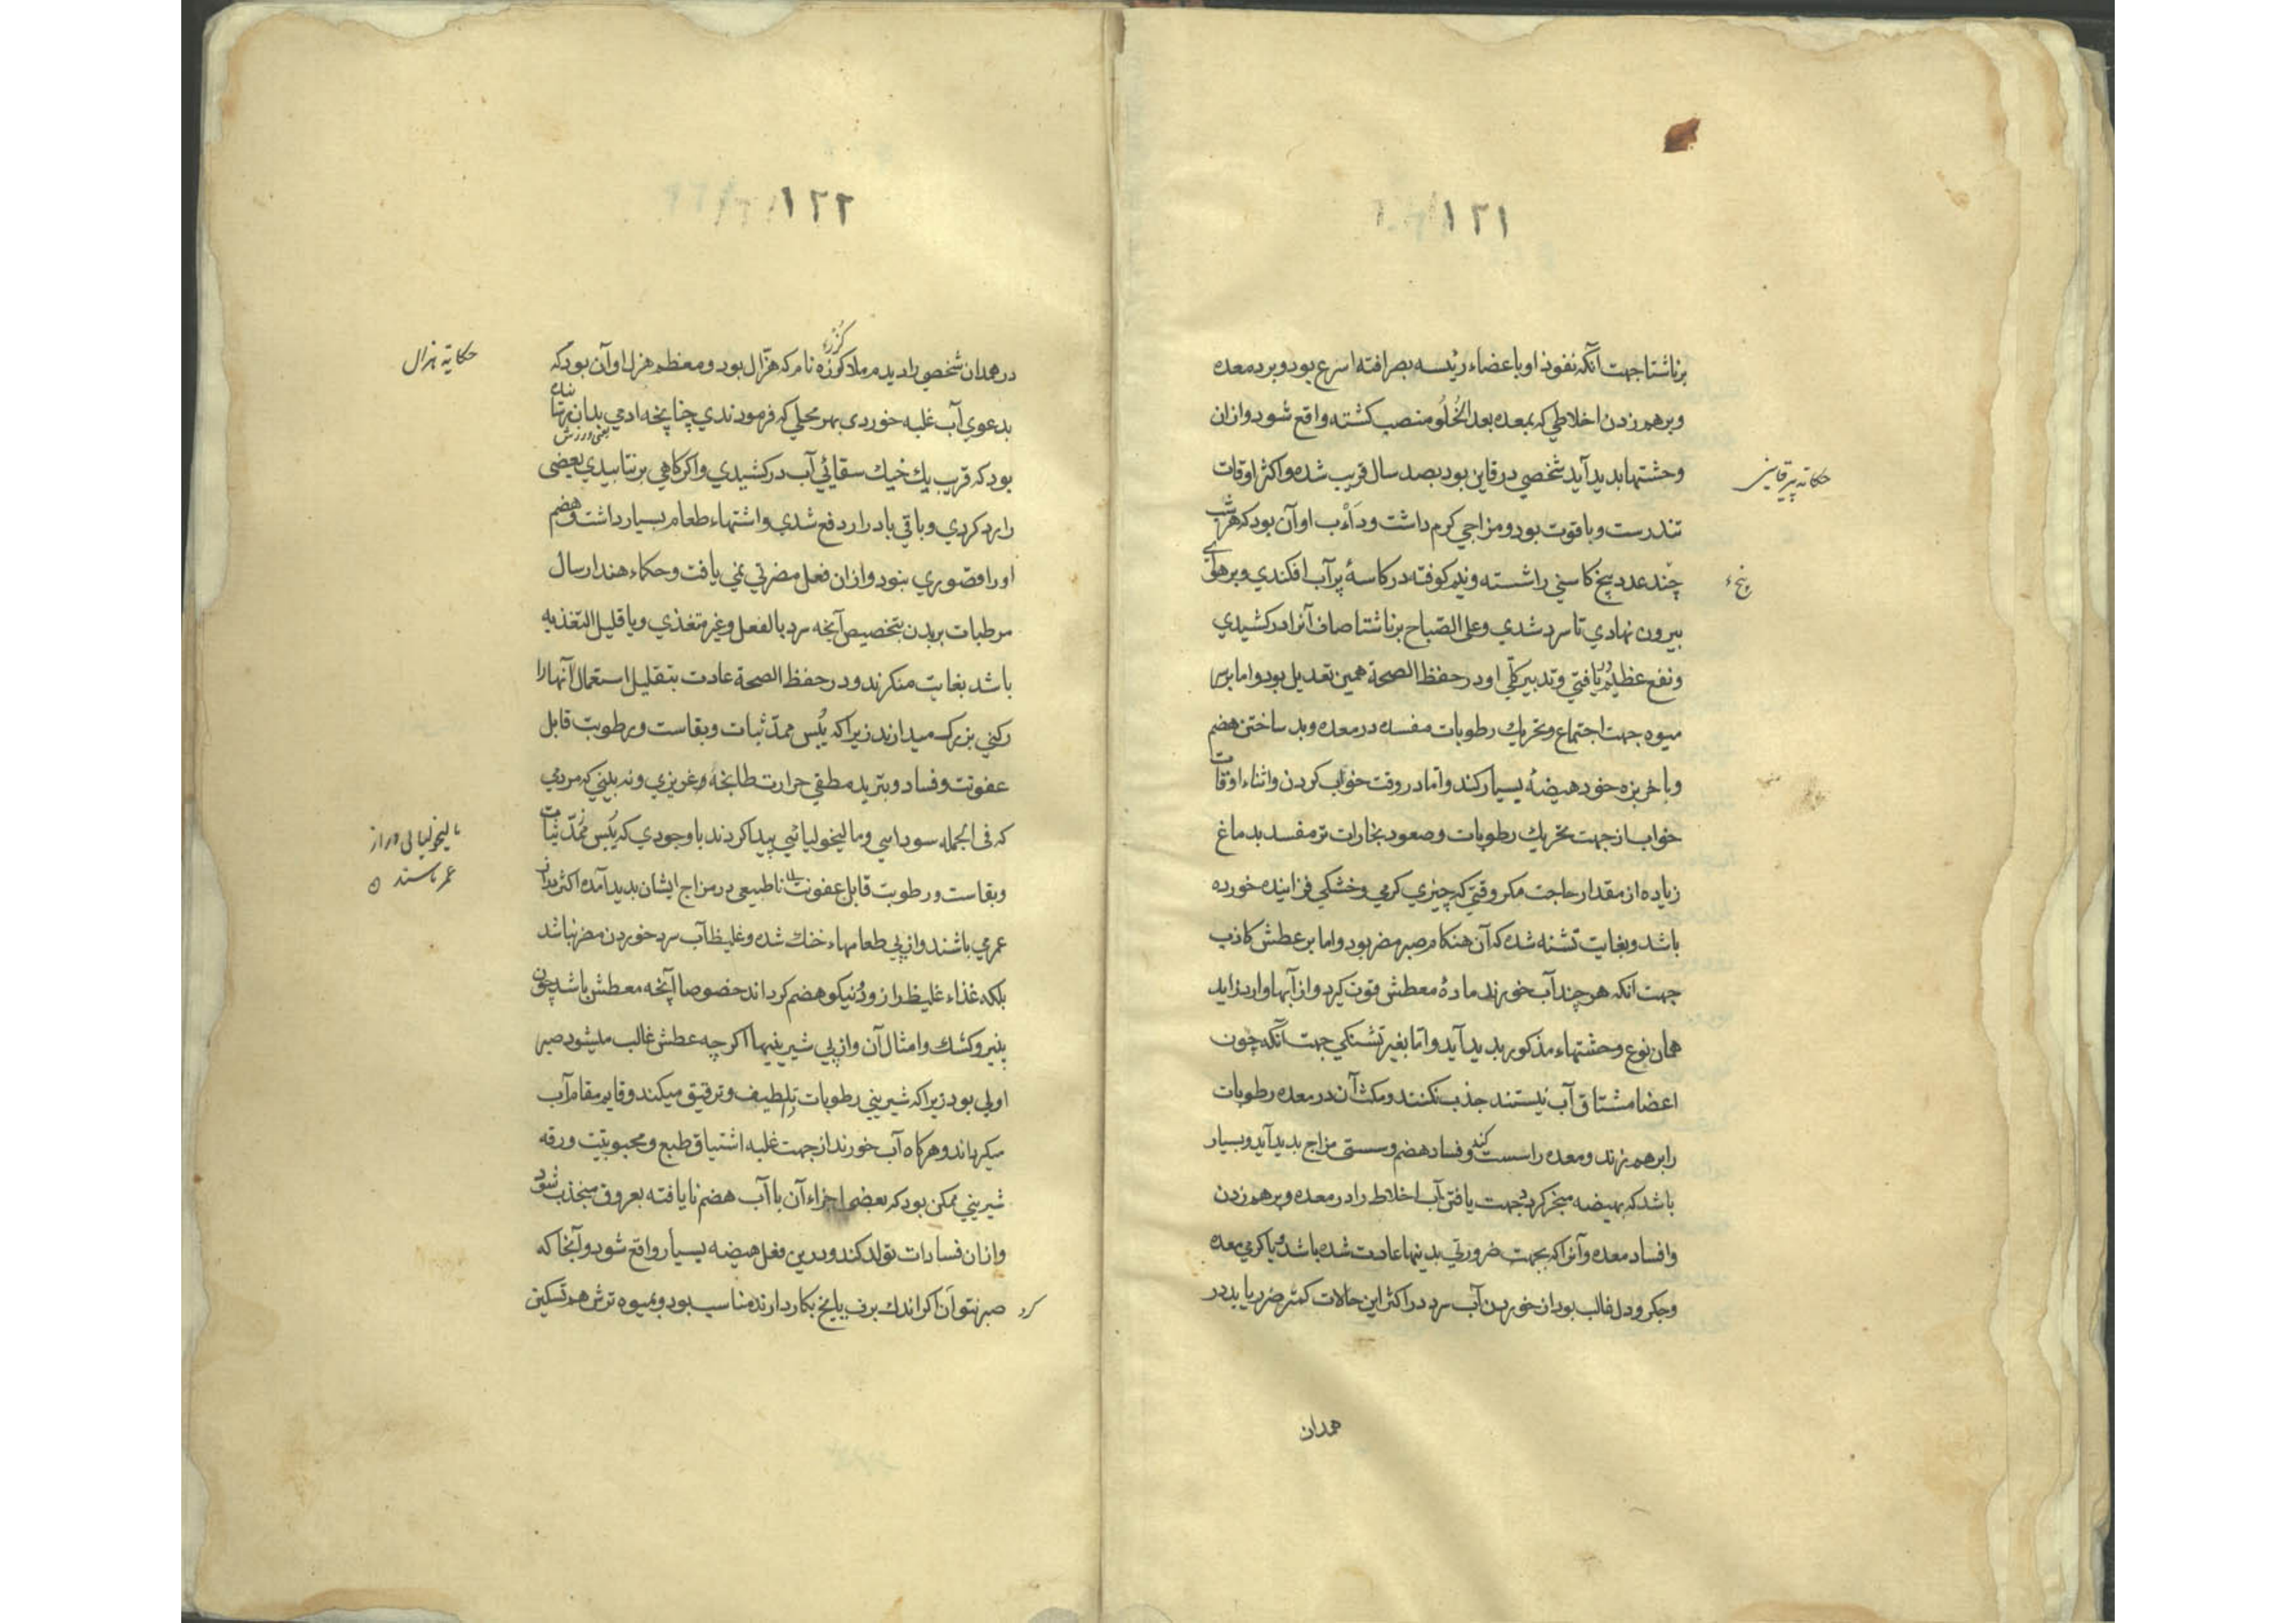 ۱۲۱
برناشتا جهت آنکه نفوذ او باعضاء رئیسه بصرافته اسرع بود و برد معده
و برهم زدن اخلاطی که بمعده بعد الخُلُو منصب کشته واقع شود و ازان
وحشتها بدید آید شخصی در قاین بود بصد سال قریب شده و اکثر اوقات
حکایه پیر قاینی
تندرست و با قوت بود و مزاجی کرم داشت و دَأب او آن بود که هر شب
چند عدد بیخ کاسنی را شسته و نیم کوفته در کاسۀ پر آب افکندی و بر هوای
بیرون نهادی تا سرد شدی و علی الصّباح برناشتا صاف آنرا در کشیدی
و نفع عظیم یافتی و تدبیر کلّی او در حفظ الصحة همین تعدیل بود و اما بر سر
میوه جهت اجتماع و تحریك رطوبات مفسده در معده و بد ساختن هضم
و با خربزه خود هیضۀ بسیار کند و اما در وقت خواب کردن و اثناء اوقات
خواب از جهت تحریك رطوبات و صعود بخارات تر مفسد بدماغ
زیاده از مقدار حاجت مکر وقتی که چیزی کرمی و خشکی فزاینده خورده
باشد و بغایت تشنه شده که آن هنکام صبر مضر بود و اما بر عطش کاذب
جهت انکه هر چند آب خورند مادۀ معطش قوت کیرد و از آبها وارد زاید
همان نوع وحشتهاء مذکور بدید آید و اما بغیر تشنکی جهت آنکه چون
اعضا مشتاق آب نیستند جذب نکنند و مکث آن در معده رطوبات
را برهم زند و معده را سست کند و فساد هضم و سستی مزاج بدید آید و بسیار
باشد که بهیضه منجر کردد جهت یافتن آب اخلاط را در معده و برهم زدن
و افساد معده و آنرا که بجهت ضرورتی بدینها عادت شده باشد و یا کرمی معده
و جکر و دل غالب بود از خوردن آب سرد در اکثر این حالات کمتر ضرر یابد در
همدان
۱۲۲
در همدان شخصی را دیدم ملا کوزه نام که هزّال بود و معظم هزل او آن بود که
حکایة هزال
بدعوی آب غلبه خوردی بهر محلی که فرمودندی چنانچه ادمی بدان برتا
یعنی ورزش
بود که قریب یك خیك سقائی آب در کشیدی و اکر کاهی بر نتابیدی بعضی
را رد کردی و باقی بادرار دفع شدی و اشتهاء طعام بسیار داشت و هضم
او را قصوری نبود و ازان فعل مضرتی نمی یافت و حکماء هند ارسال
مرطبات بر بدن بتخصیص آنچه سرد بالفعل و غیر متغذی و یا قلیل التغذیه
باشد بغایت منکرند و در حفظ الصحة عادت بتقلیل استعمال آنها را
رکنی بزرك میدارند زیرا که یُبس ممدّ ثبات و بقاست و رطوبت قابل
عفونت و فساد و تبرید مطفی حرارت طابخه و غریزی و نه بینی که مردمی
که فی الجمله سودایی و مالیخولیائی پیدا کردند با وجودی که یُبس ممدّ ثبات
مالیخولیائی دراز
عمر باشند
و بقاست و رطوبت قابل عفونت ناطبیعی در مزاج ایشان بدید آمده اکثر دراز
عمر می باشند و از پی طعامهاء خنك شده و غلیظ آب سرد خوردن مضر نباشد
بلکه غذاء غلیظ را زود و نیکو هضم کرداند خصوصا آنچه معطش باشد چون
پنیر و کشك و امثال آن و از پی شیرینیها اکر چه عطش غالب میشود صبر
اولی بود زیرا که شیرینی رطوبات تلطیف و ترقیق میکند و قایم مقام آب
میکرداند و هر کاه آب خورند از جهت غلبه اشتیاق طبع و محبوبیّت و رقه
شیرینی ممکن بود که بعضی اجزاء آن با آب هضم نایافته بعروق منجذب شود
و ازان فسادات تولد کند و درین فعل هیضه بسیار واقع شود و آنجا که
صبر نتوان کرد اکر اندك برف یا یخ بکار دارند مناسب بود و بمیوه ترش هم تسکین